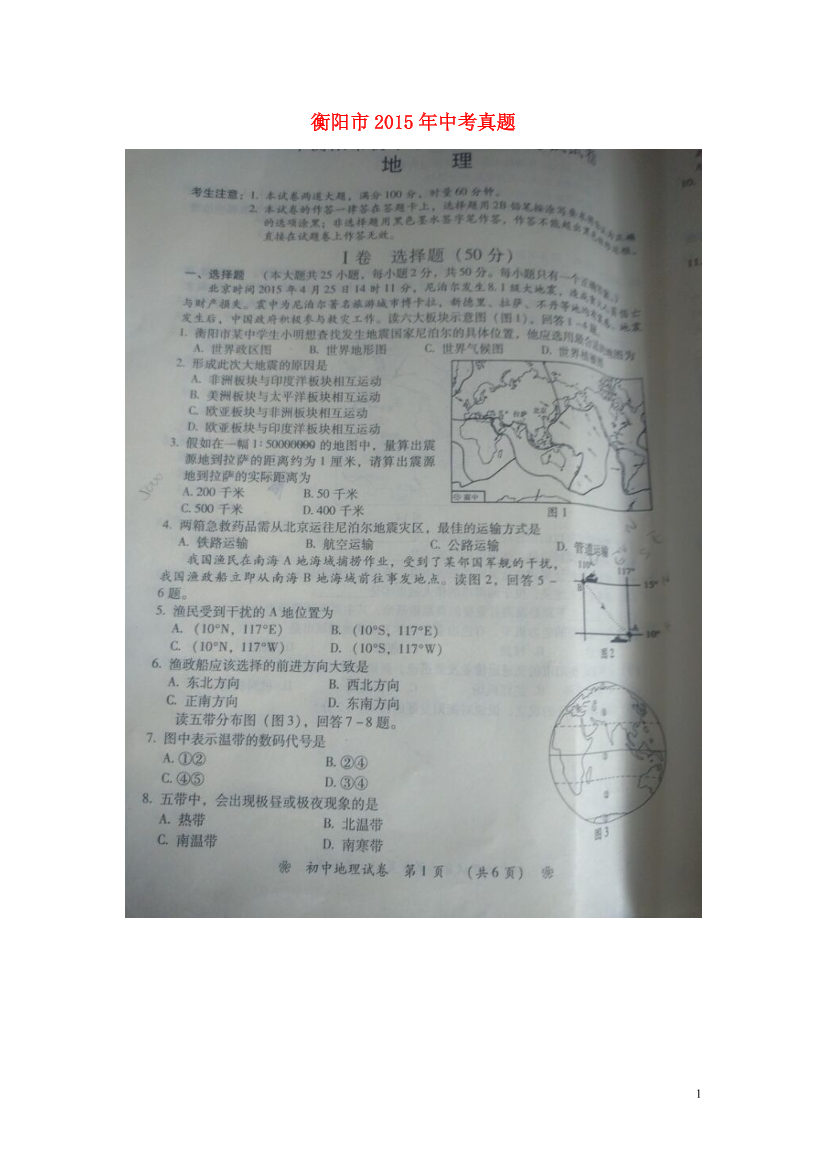 衡阳市 2015 年中考真题
地 理
考生注意：1. 本试卷两道大题，满分100分，时量60分钟。
2. 本试卷的作答一律答在答题卡上，选择题用2B铅笔按涂写
的选项涂黑；非选择题用黑色墨水签字笔作答，作答不能超出
直接在试题卷上作答无效。
Ⅰ卷 选择题（50分）
一、选择题 （本大题共25小题，每小题2分，共50分。每小题只有一个
北京时间2015年4月25日14时11分，尼泊尔发生8.1级大地震，造成
与财产损失。震中为尼泊尔著名旅游城市博卡拉，新德里、拉萨、不丹等地均有
发生后，中国政府积极参与救灾工作。读六大板块示意图（图1），回答1－4题。
1. 衡阳市某中学生小明想查找发生地震国家尼泊尔的具体位置，他应选用
A. 世界政区图 B. 世界地形图 C. 世界气候图 D. 世界
2. 形成此次大地震的原因是
A. 非洲板块与印度洋板块相互运动
B. 美洲板块与太平洋板块相互运动
C. 欧亚板块与非洲板块相互运动
D. 欧亚板块与印度洋板块相互运动
3. 假如在一幅1:50000000的地图中，量算出震
源地到拉萨的距离约为1厘米，请算出震源
地到拉萨的实际距离为
A. 200千米 B. 50千米
C. 500千米 D. 400千米
图1
4. 两箱急救药品需从北京运往尼泊尔地震灾区，最佳的运输方式是
A. 铁路运输 B. 航空运输 C. 公路运输 D. 管道运输
我国渔民在南海A地海域捕捞作业，受到了某邻国军舰的干扰，
我国渔政船立即从南海B地海域前往事发地点。读图2，回答5－
6题。
110° 117°
B 15°
A 10°
图2
5. 渔民受到干扰的A地位置为
A.（10°N，117°E） B.（10°S，117°E）
C.（10°N，117°W） D.（10°S，117°W）
6. 渔政船应该选择的前进方向大致是
A. 东北方向 B. 西北方向
C. 正南方向 D. 东南方向
读五带分布图（图3），回答7－8题。
7. 图中表示温带的数码代号是
A. ①② B. ②④
C. ④⑤ D. ③④
图3
8. 五带中，会出现极昼或极夜现象的是
A. 热带 B. 北温带
C. 南温带 D. 南寒带
初中地理试卷 第1页 （共6页）
1